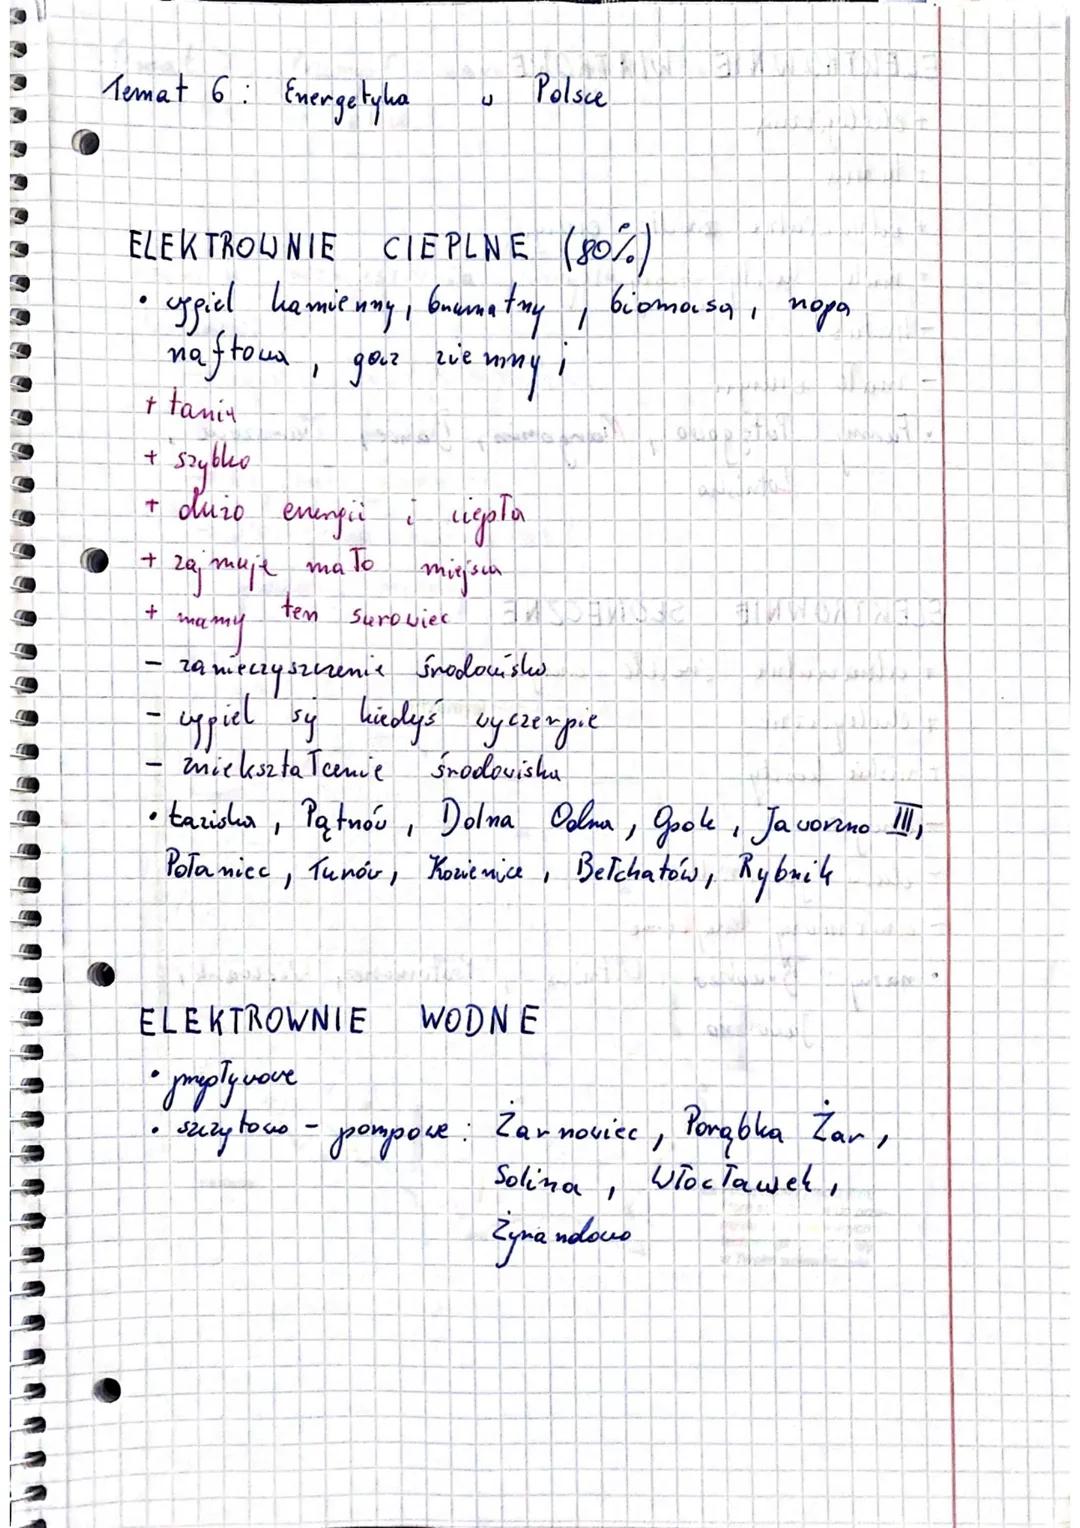 Temat 6: Energetyka w Polsce
ELEKTROWNIE CIEPLNE (80%)
• węgiel kamienny, brunatny, biomasa, ropa
naftowa, gaz ziemny;
+ tania
+ szybko
+ dużo energii i ciepła
+ zajmuje mało miejsca
+ mamy ten surowiec
- zanieczyszczenie środowiska
- węgiel się kiedyś wyczerpie
- zniekształcenie środowiska
• Łaziska, Pątnów, Dolna Odra, Opole, Jaworzno III,
Połaniec, Turów, Kozienice, Bełchatów, Rybnik
ELEKTROWNIE WODNE
• przepływowe
• szczytowo - pompowe: Żarnowiec, Porąbka Żar,
Solina, Włocławek,
Żyrandowo